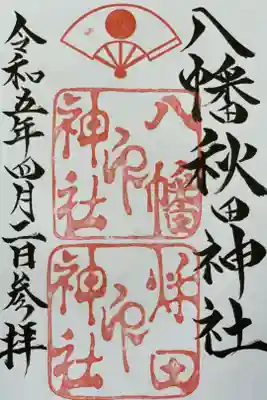 八幡秋田神社
八幡
神社
印
秋田
神社
印
令和五年四月二日参拝